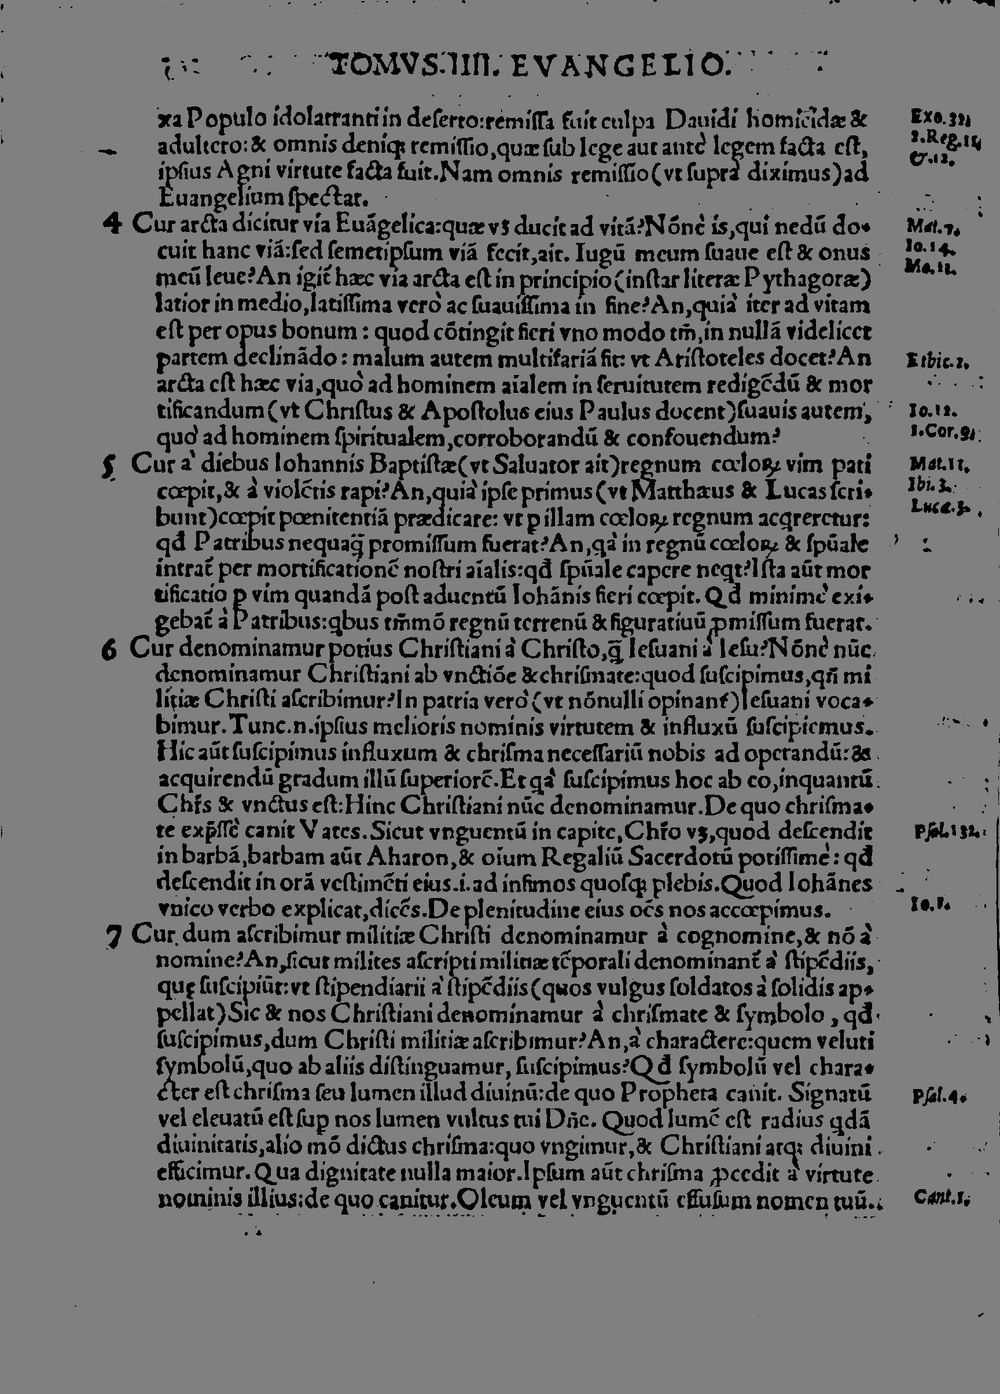 TOMVS.IIII. EVANGELIO.
xa Populo idolatranti in deserto:remissa fuit culpa Dauidi homicidæ & Exo.32.
adultero:& omnis deniq; remissio,quæ sub lege aut ante legem facta est, 2.Reg.11
& 12.
ipsius Agni virtute facta fuit.Nam omnis remissio(vt supra diximus)ad
Euangelium spectat.
4 Cur arcta dicitur via Euãgelica:quæ vꝫ ducit ad vitã?Nõnè is,qui nedũ do- Mat.7.
cuit hanc viã:sed semetipsum viã fecit,ait. Iugũ meum suaue est & onus Io.14.
meũ leue?An igit̃ hæc via arcta est in principio(instar literæ Pythagoræ) Ma.11.
latior in medio,latissima verò ac suauissima in fine?An,quià iter ad vitam
est per opus bonum : quod cõtingit fieri vno modo tm̃,in nullã videlicet
partem declinãdo : malum autem multifariã fit: vt Aristoteles docet?An Ethic.2.
arcta est hæc via,quò ad hominem aĩalem in seruitutem redigẽdũ & mor
tificandum(vt Christus & Apostolus eius Paulus docent)suauis autem, Io.12.
quò ad hominem spiritualem,corroborandũ & confouendum? 1.Cor.9.
5 Cur à diebus Iohannis Baptistæ(vt Saluator ait)regnum cœloꝝ vim pati Mat.11.
cœpit,& à violẽtis rapi?An,quià ipse primus(vt Matthæus & Lucas scri- Ibi.3.
bunt)cœpit pœnitentiã prædicare: vt ꝑ illam cœloꝝ regnum acq̃reretur: Luca.3.
qđ Patribus nequaq̃ promissum fuerat?An,q̃à in regnũ cœloꝝ & spũale
intrat̃ per mortificationẽ nostri aĩalis:qđ spũale capere neq̃t?Ista aũt mor
tificatio ꝑ vim quandã post aduentũ Iohãnis fieri cœpit. Qđ minimè exi-
gebat̃ à Patribus:q̃bus tm̃mõ regnũ terrenũ & figuratiuũ ꝓmissum fuerat.
6 Cur denominamur potius Christiani à Christo,q̃ Iesuani à Iesu?Nõnè nũc
denominamur Christiani ab vnctiõe & chrismate:quod suscipimus,qñ mi
litiæ Christi ascribimur?In patria verò(vt nõnulli opinant̃)Iesuani voca-
bimur.Tunc.n.ipsius melioris nominis virtutem & influxũ suscipiemus.
Hic aũt suscipimus influxum & chrisma necessariũ nobis ad operandũ:&
acquirendũ gradum illũ superiorẽ.Et q̃à suscipimus hoc ab eo,inquantũ
Chr̃s & vnctus est:Hinc Christiani nũc denominamur.De quo chrisma-
te exp̃ssè canit Vates.Sicut vnguentũ in capite,Chr̃o vꝫ,quod descendit Psal.132.
in barbã,barbam aũt Aharon,& oĩum Regaliũ Sacerdotũ potissimè: qđ
descendit in orã vestimẽti eius.i.ad infimos quosq; plebis.Quod Iohãnes
vnico verbo explicat,dicẽs.De plenitudine eius oẽs nos accœpimus. Io.1.
7 Cur dum ascribimur militiæ Christi denominamur à cognomine,& nõ à
nomine?An,sicut milites ascripti militiæ tẽporali denominant̃ à stipẽdiis,
quę suscipiũt:vt stipendiarii à stipẽdiis(quos vulgus soldatos à solidis ap-
pellat)Sic & nos Christiani denominamur à chrismate & symbolo , qđ
suscipimus,dum Christi militiæ ascribimur?An,à charactere:quem veluti
symbolũ,quo ab aliis distinguamur, suscipimus?Qđ symbolũ vel chara-
cter est chrisma seu lumen illud diuinũ:de quo Propheta canit. Signatũ Psal.4.
vel eleuatũ est suꝑ nos lumen vultus tui Dñe. Quod lumẽ est radius q̃dã
diuinitatis,alio mõ dictus chrisma:quo vngimur,& Christiani atq; diuini
efficimur.Qua dignitate nulla maior.Ipsum aũt chrisma ꝓcedit à virtute
nominis illius:de quo canitur.Oleum vel vnguentũ effusum nomen tuũ. Cant.1.